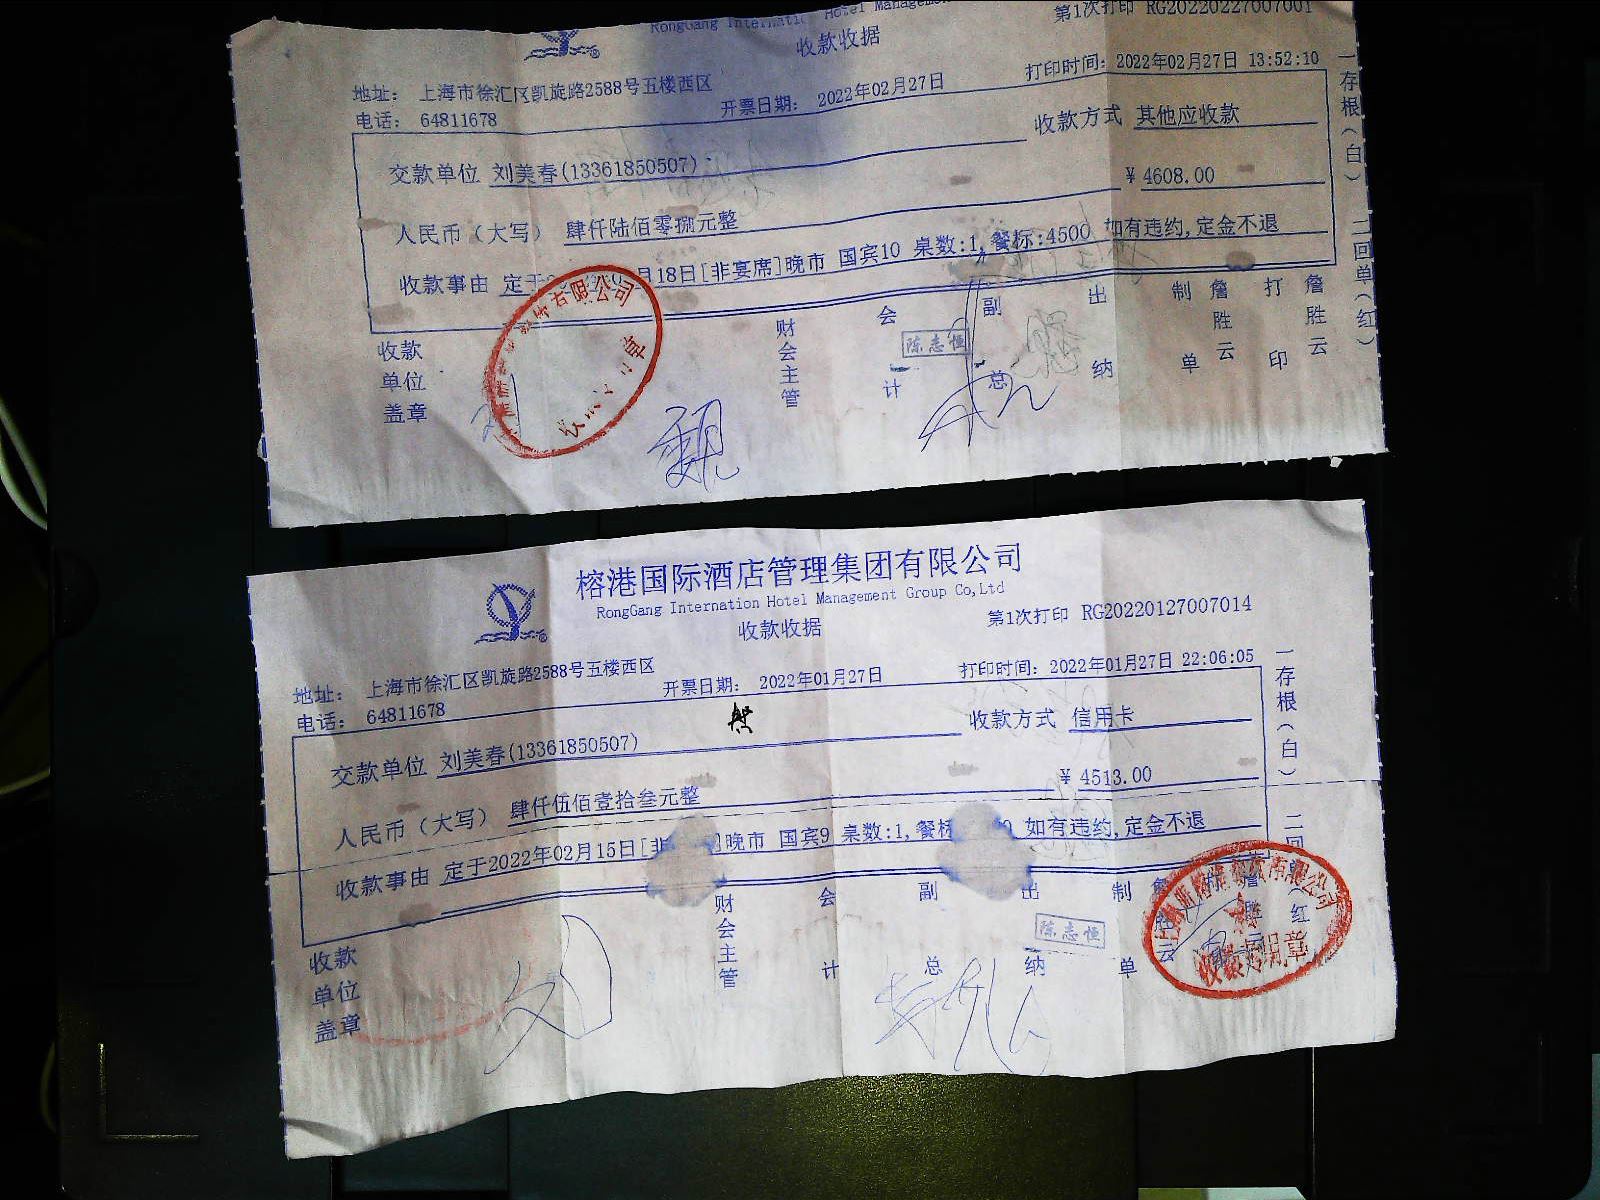 RongGang Internatic Hotel Managem
第1次打印 RG20220227007001
收款收据
地址: 上海市徐汇区凯旋路2588号五楼西区
电话: 64811678
开票日期: 2022年02月27日
打印时间: 2022年02月27日 13:52:10
收款方式 其他应收款
交款单位 刘美春(13361850507)
¥ 4608.00
人民币(大写) 肆仟陆佰零捌元整
收款事由 定于 月18日[非宴席]晚市 国宾10 桌数:1,餐标:4500 如有违约,定金不退
收款单位盖章
财会主管
会计
副总
出纳
制单
詹胜云
打印
詹胜云
陈志恒
一存根(白) 二回单(红)
有限公司
榕港国际酒店管理集团有限公司
RongGang Internation Hotel Management Group Co,Ltd
收款收据
第1次打印 RG20220127007014
地址: 上海市徐汇区凯旋路2588号五楼西区
电话: 64811678
开票日期: 2022年01月27日
打印时间: 2022年01月27日 22:06:05
收款方式 信用卡
交款单位 刘美春(13361850507)
¥ 4513.00
人民币(大写) 肆仟伍佰壹拾叁元整
收款事由 定于2022年02月15日[非 ]晚市 国宾9 桌数:1,餐标 如有违约,定金不退
收款单位盖章
财会主管
会计
副总
出纳
制单
陈志恒
一存根(白) 二回 红
有限公司
收款专用章